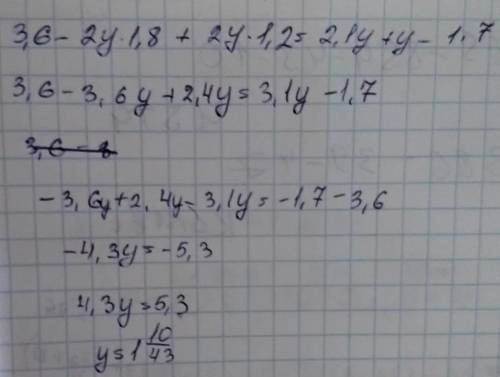 3,6 - 2y·1,8 + 2y·1,2 = 2,1y + y - 1,7
3,6 - 3,6y + 2,4y = 3,1y - 1,7
-3,6y + 2,4y - 3,1y = -1,7 - 3,6
-4,3y = -5,3
4,3y = 5,3
y = 1 10/43